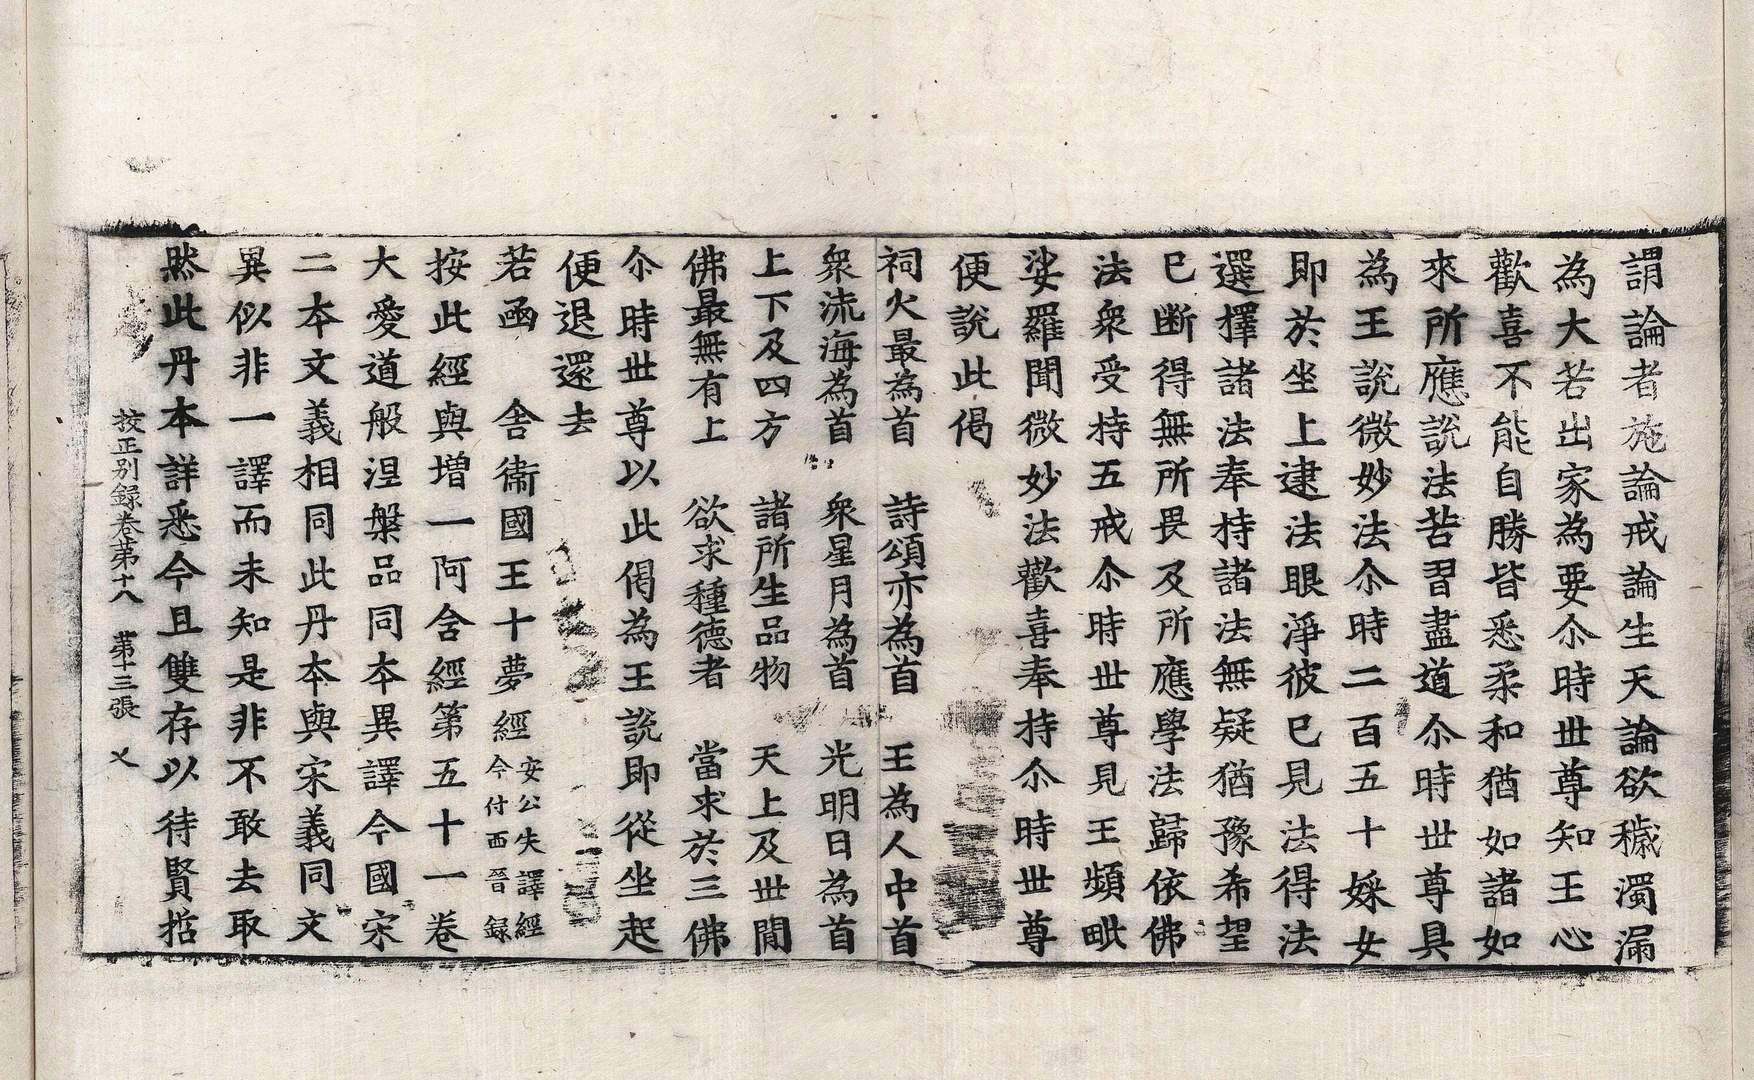 謂論者施論戒論生天論欲穢濁漏
為大若出家為要尒時世尊知王心
歡喜不能自勝皆悉柔和猶如諸如
來所應說法苦習盡道尒時世尊具
為王說微妙法尒時二百五十婇女
即於坐上逮法眼淨彼已見法得法
選擇諸法奉持諸法無疑猶豫希望
已斷得無所畏及所應學法歸依佛
法衆受持五戒尒時世尊見王頻毗
娑羅聞微妙法歡喜奉持尒時世尊
便說此偈
祠火最為首　詩頌亦為首　王為人中首
衆流海為首　衆星月為首　光明日為首
上下及四方　諸所生品物　天上及世閒
佛最無有上　欲求種德者　當求於三佛
尒時世尊以此偈為王說即從坐起
便退還去
若函　舍衛國王十夢經安公失譯經今付西晉錄
按此經與增一阿含經第五十一卷
大愛道般涅槃品同本異譯今國宋
二本文義相同此丹本與宋義同文
異似非一譯而未知是非不敢去取
然此丹本詳悉今且雙存以待賢哲
校正别錄卷第十八　第十三張　乂